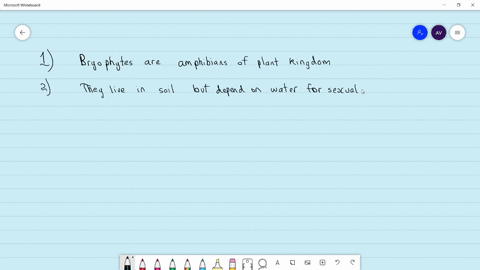 Microsoft Whiteboard
AV
1) Bryophytes are amphibians of plant kingdom
2) They live in soil but depend on water for sexual